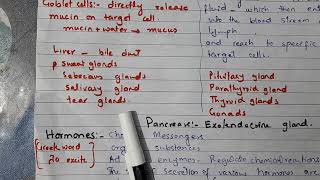 Goblet cells:- directly release
mucin on target cell
mucin + water → mucus
Liver - bile duct
sweat glands
Sebacious glands
salivary gland
tear glands
fluid - which then ent
into the blood stream
lymph
and reach to specific
target cells.
Pituitary gland
Parathyroid gland
Thyroid glands
Gonads
Pancreas:- Exo/endocrine gland.
Hormones:- Ch Messengers
Greek word
to excite
substances
enzymes - Regulate chemical reactions
Secretion of various hormones are